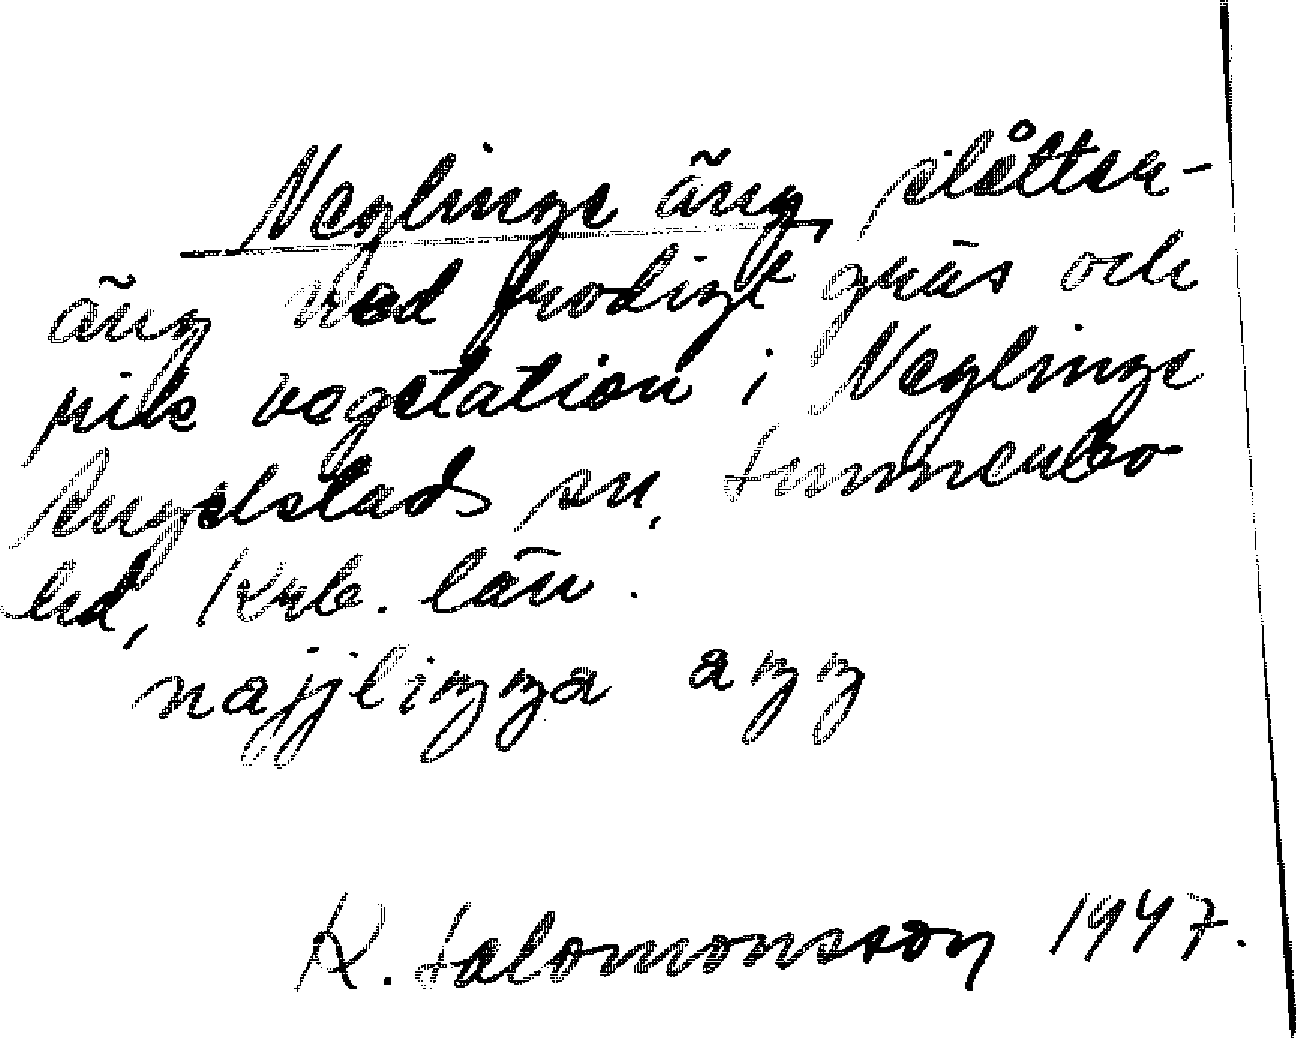 Neglinge äng, slåtter-
äng med frodigt gräs och
rik vegetation i Neglinge
Ringelstads sn, Sunnerbo
hd, Krb. län.
najjlinga azz
K. Salomonsson 1947.